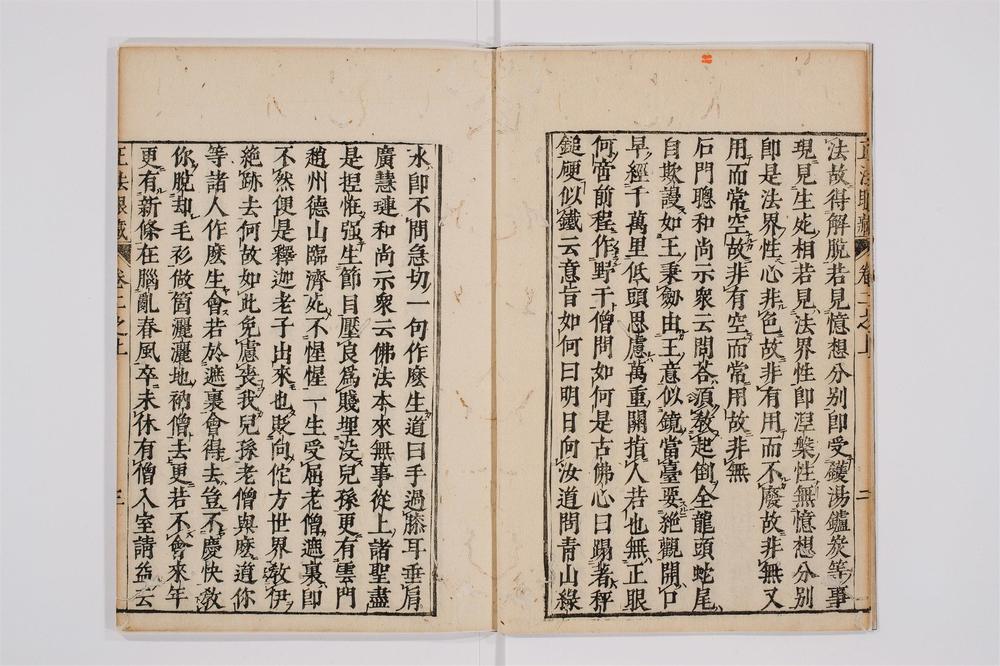 正法眼藏 卷二之上 二
法故得解脫若見憶想分別即受鑊湯鑪炭等事
現見生死相若見法界性即涅槃性無憶想分別
即是法界性心非色故非有用而不廢故非無又
用而常空故非有空而常用故非無
石門聰和尚示衆云問荅須敎起倒全龍頭蛇尾
自欺謾如王秉劒由王意似鏡當臺要絕觀開口
早經千萬里低頭思慮萬重關指人若也無正眼
何啻前程作野干僧問如何是古佛心曰踢著秤
鎚硬似鐵云意旨如何曰明日向汝道問青山綠
水即不問急切一句作麽生道曰手過膝耳垂肩
廣慧璉和尚示衆云佛法本來無事從上諸聖盡
是揑恠强生節目壓良爲賤埋没兒孫更有雲門
趙州德山臨濟死不惺惺一生受屈老僧遮裏即
不然便是釋迦老子出來也貶向佗方世界敎伊
絶跡去何故如此免慮喪我兒孫老僧與麽道你
等諸人作麽生會若於遮裏會得去豈不慶快敎
你脫却毛衫做箇灑灑地衲僧去更若不會來年
更有新條在腦亂春風卒未休有僧入室請益云
正法眼藏 卷二之上 三